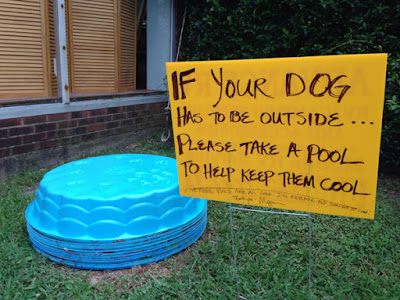 IF YOUR DOG
HAS TO BE OUTSIDE...
PLEASE TAKE A POOL
TO HELP KEEP THEM COOL